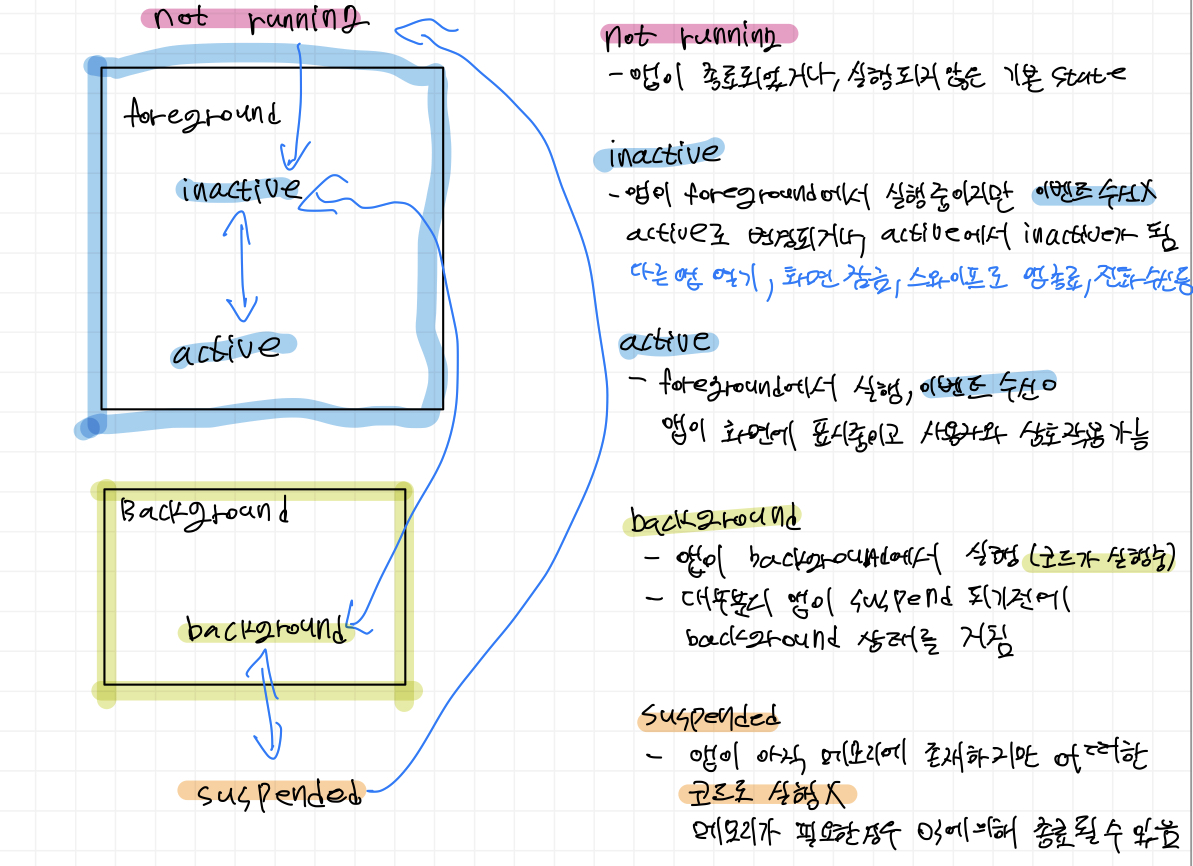 not running
foreground
inactive
active
Background
background
suspended
not running
- 앱이 종료되었거나, 실행되지 않은 기본 state
inactive
- 앱이 foreground에서 실행중이지만 이벤트 수신X
active로 변경되거나, active에서 inactive가 됨
다른 앱 열기, 화면 잠금, 스와이프로 앱종료, 전화수신등
active
- foreground에서 실행, 이벤트 수신O
앱이 화면에 표시중이고 사용자와 상호작용가능
background
- 앱이 background에서 실행 (코드가 실행중)
- 대부분의 앱이 suspend 되기전에
background 상태를 거침
suspended
- 앱이 아직 메모리에 존재하지만 어떠한
코드로 실행X
메모리가 필요한경우 OS에 의해 종료될 수 있음